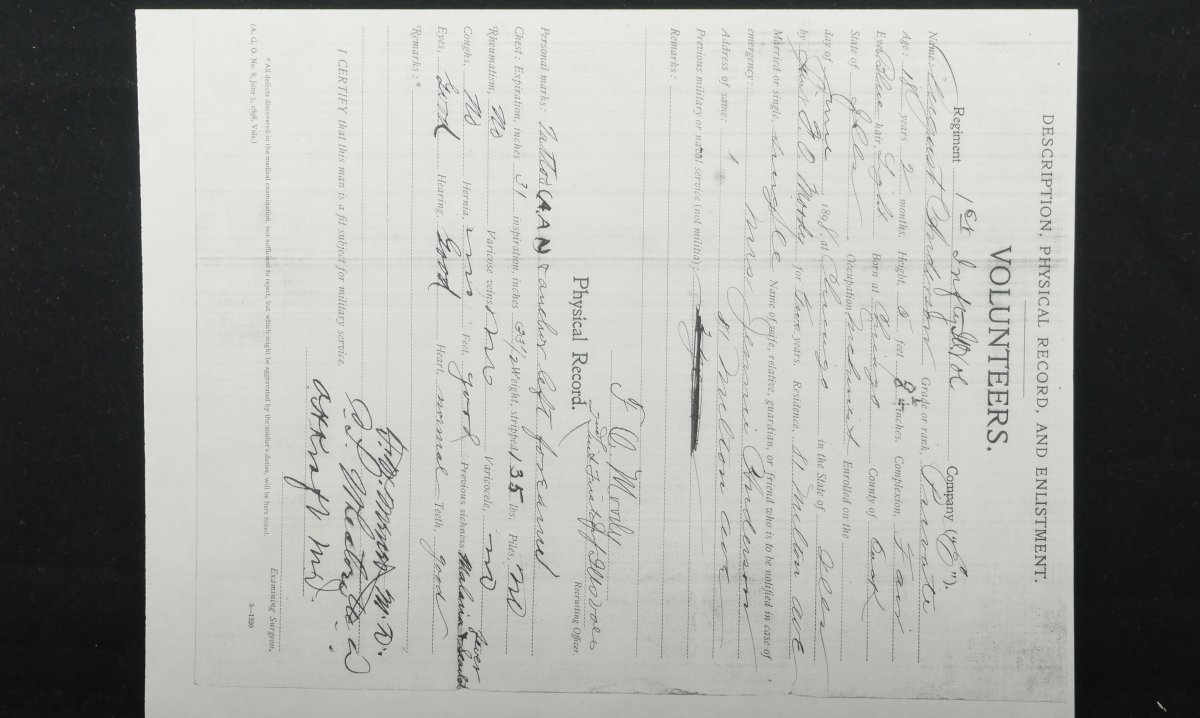 DESCRIPTION, PHYSICAL RECORD, AND ENLISTMENT.
VOLUNTEERS.
Regiment 1st Infty Ill Vol. Company ("E").
Name: August Anderson Grade or rank, Private
Age: 18 years 2 months. Height, 5 feet inches. Complexion, Fair
Eyes, Blue hair, Light Born at Chicago County of Cook
State of Ills Occupation Machinist Enrolled on the
day of June 1898, at Chicago in the State of Ills
by for two years. Residence, 81 Mellon ave
Married or single, Single Name of wife, relative, guardian, or friend who is to be notified in case of
emergency: Mrs Jennie Anderson
Address of same: 81 Mellon ave
Previous military or naval service (not militia):
Remarks:
Recruiting Officer.
Physical Record.
Personal marks: Tattoo (A.A.N & anchor left forearm
Chest: Expiration, inches 31 inspiration, inches Weight, stripped 135 lbs. Piles, no
Rheumatism, No Varicose veins, no Varicocele, no
Coughs, No Hernia, no Feet, good Previous sickness, Malaria fever
Eyes, Good Hearing, Good Heart, normal Teeth, good
Remarks:*
I CERTIFY that this man is a fit subject for military service.
Examining Surgeon.
* All defects discovered in the medical examination, not sufficient to reject, but which might be aggravated by the soldier's duties, will be here noted.
(A. G. O. No. 8, June 3, 1898, Vols.) 3—1020